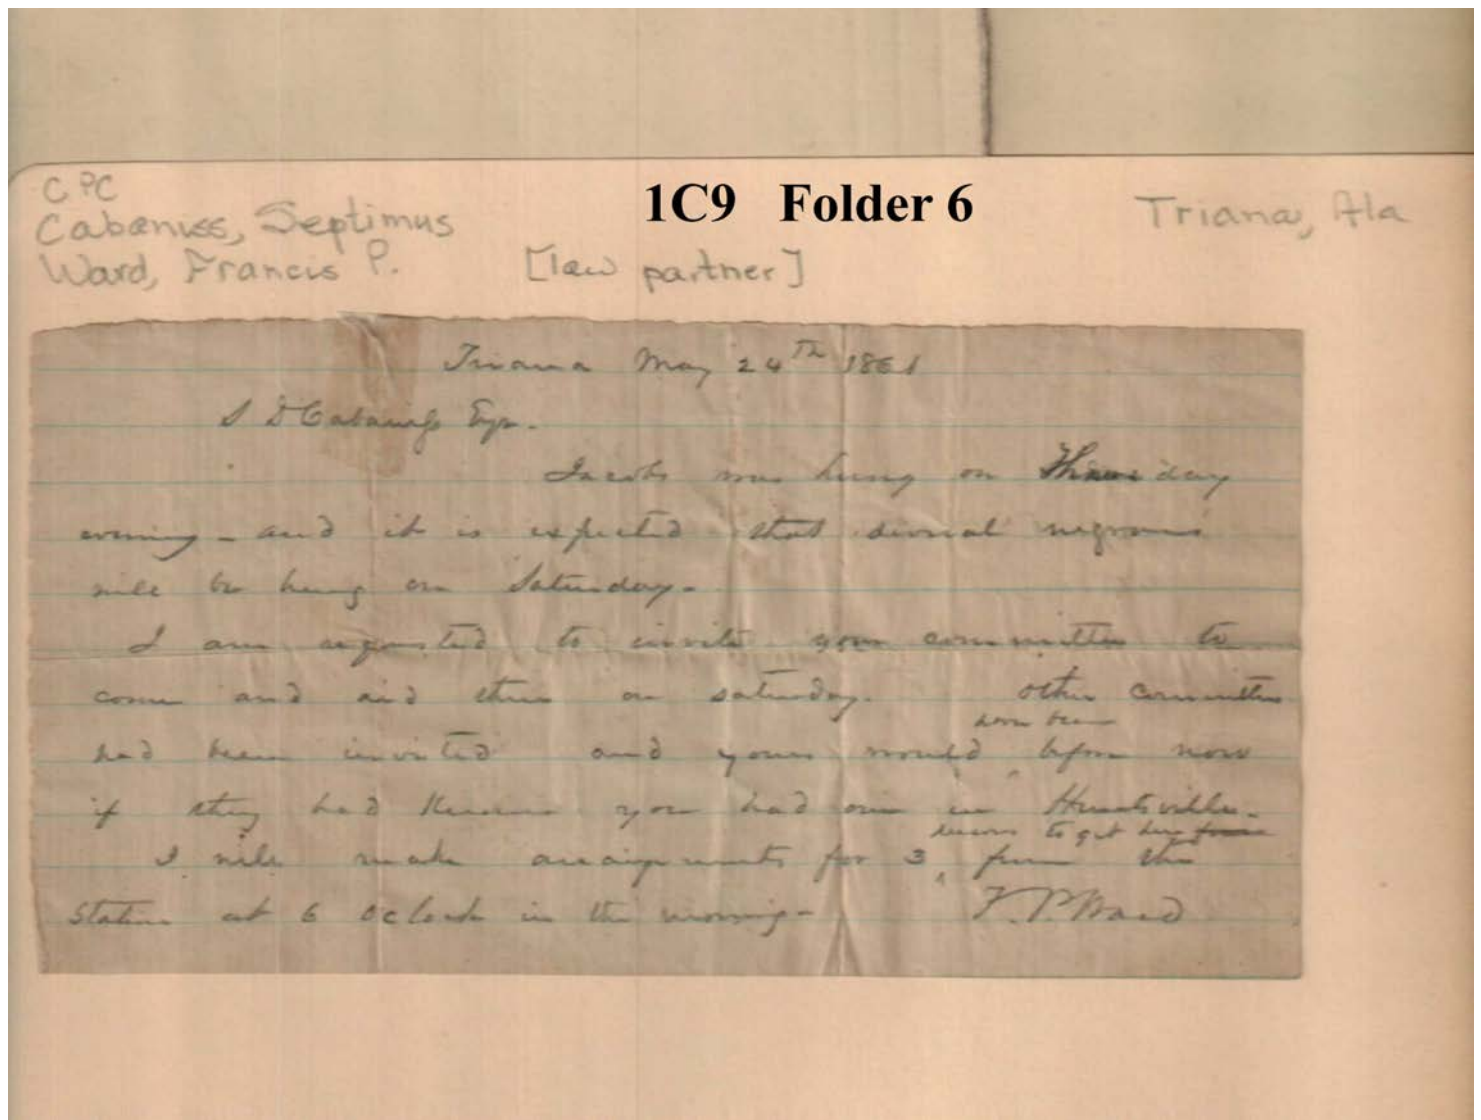 CPC
Cabaniss, Septimus
Ward, Francis P. [law partner]
1C9 Folder 6
Triana, Ala
Triana May 24th 1861
S D Cabaniss Esqr.
Jacob was hung on day
evening - and it is expected that several negroes
will be hung on Saturday -
I am requested to invite your committee to
come and aid them on saturday. other committees
had been invited and yours would have been before now
if they had known you had one in Huntsville -
I will make arraingements for 3 to get here from the
Station at 6 oclock in the morning - F. P. Ward